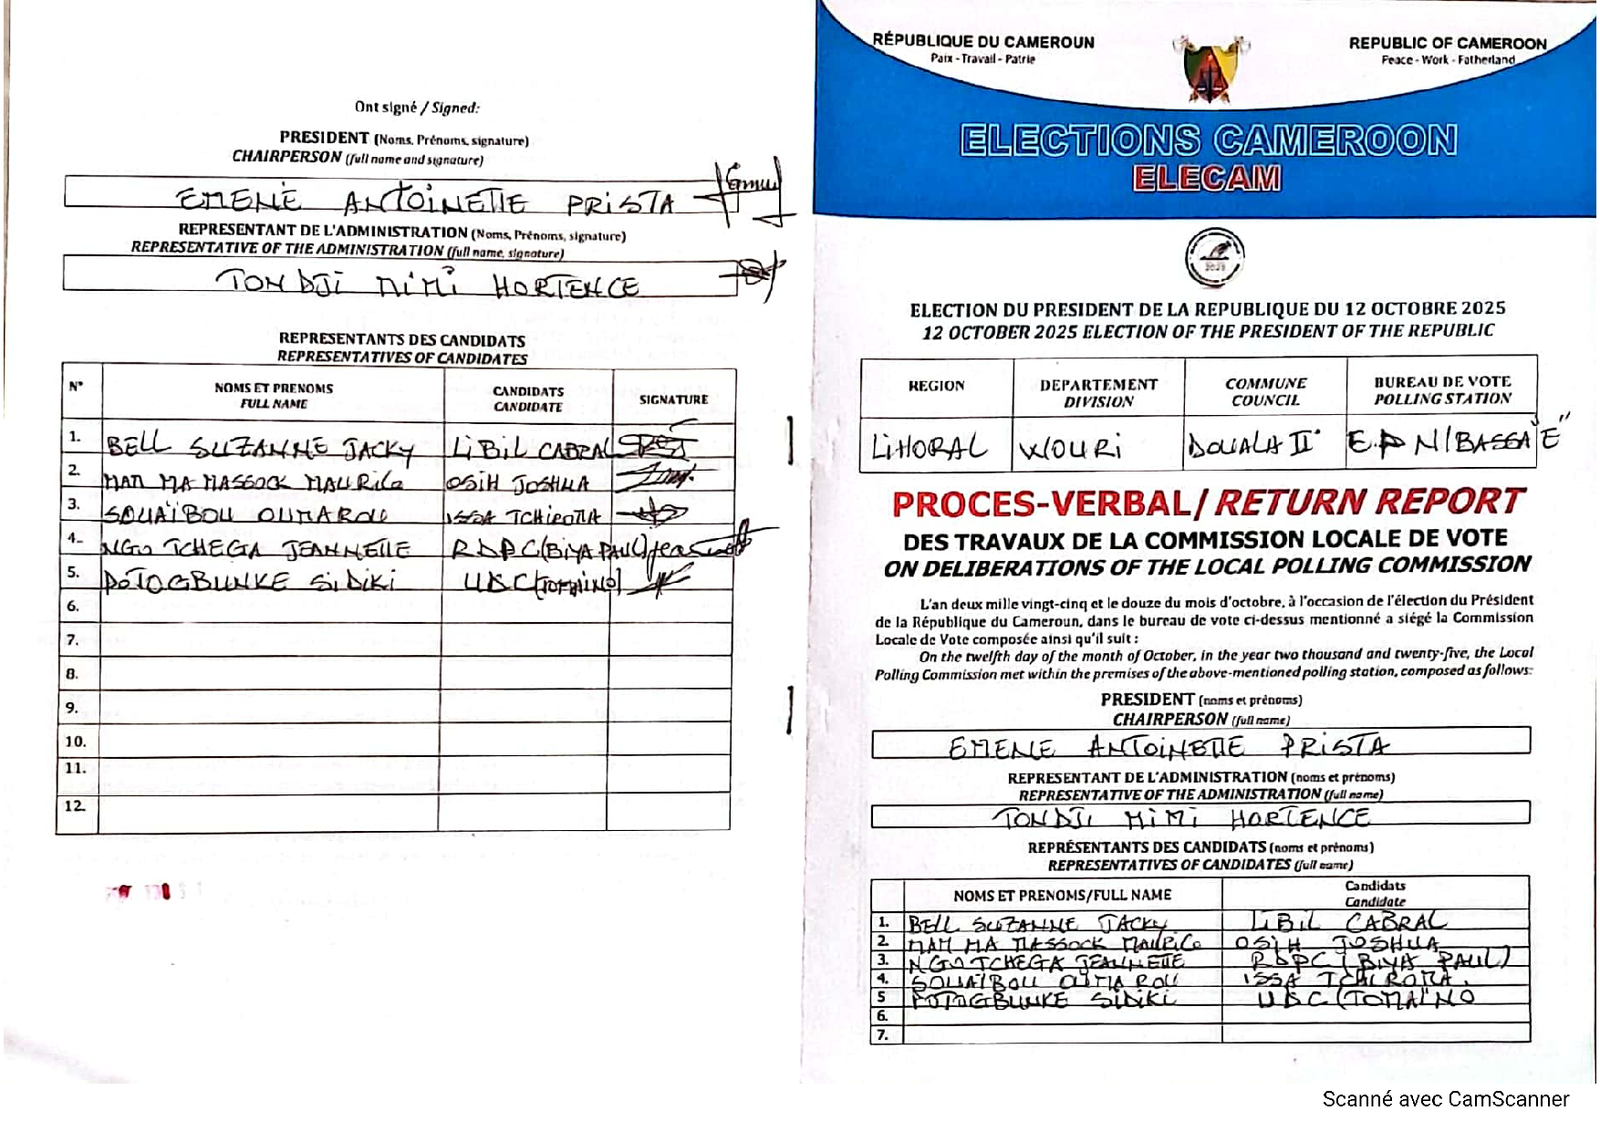 Ont signé / Signed:
PRESIDENT (Noms, Prénoms, signature)
CHAIRPERSON (full name and signature)
EMENE ANTOINETTE PRISTA
REPRESENTANT DE L'ADMINISTRATION (Noms, Prénoms, signature)
REPRESENTATIVE OF THE ADMINISTRATION (full name, signature)
TONDJI MIMI HORTENCE
REPRESENTANTS DES CANDIDATS
REPRESENTATIVES OF CANDIDATES
N° NOMS ET PRENOMS CANDIDATS SIGNATURE
FULL NAME CANDIDATE
1. BELL SUZANNE JACKY LIBIL CABRAL
2. MAN MA MASSOCK MAURICE OSIH JOSHUA
3. SOUAÏBOU OUMAROU ISSA TCHIROMA
4. NGO TCHEGA JEANNETTE RDPC (BIYA PAUL)
5. POTOGBUNKE SIDIKI UDC (TOMAINO)
6.
7.
8.
9.
10.
11.
12.
RÉPUBLIQUE DU CAMEROUN
Paix - Travail - Patrie
REPUBLIC OF CAMEROON
Peace - Work - Fatherland
ELECTIONS CAMEROON
ELECAM
2025
ELECTION DU PRESIDENT DE LA REPUBLIQUE DU 12 OCTOBRE 2025
12 OCTOBER 2025 ELECTION OF THE PRESIDENT OF THE REPUBLIC
REGION DEPARTEMENT COMMUNE BUREAU DE VOTE
DIVISION COUNCIL POLLING STATION
LITTORAL WOURI DOUALA II E.P N/BASSA "E"
PROCES-VERBAL/ RETURN REPORT
DES TRAVAUX DE LA COMMISSION LOCALE DE VOTE
ON DELIBERATIONS OF THE LOCAL POLLING COMMISSION
L'an deux mille vingt-cinq et le douze du mois d'octobre, à l'occasion de l'élection du Président
de la République du Cameroun, dans le bureau de vote ci-dessus mentionné a siégé la Commission
Locale de Vote composée ainsi qu'il suit :
On the twelfth day of the month of October, in the year two thousand and twenty-five, the Local
Polling Commission met within the premises of the above-mentioned polling station, composed as follows:
PRESIDENT (noms et prénoms)
CHAIRPERSON (full name)
EMENE ANTOINETTE PRISTA
REPRESENTANT DE L'ADMINISTRATION (noms et prénoms)
REPRESENTATIVE OF THE ADMINISTRATION (full name)
TONDJI MIMI HORTENCE
REPRÉSENTANTS DES CANDIDATS (noms et prénoms)
REPRESENTATIVES OF CANDIDATES (full name)
NOMS ET PRENOMS/FULL NAME Candidats
Candidate
1. BELL SUZANNE JACKY LIBIL CABRAL
2. MAN MA MASSOCK MAURICE OSIH JOSHUA
3. NGO TCHEGA JEANNETTE RDPC (BIYA PAUL)
4. SOUAÏBOU OUMAROU ISSA TCHIROMA.
5 POTOGBUNKE SIDIKI UDC (TOMAÏNO
6.
7.
Scanné avec CamScanner